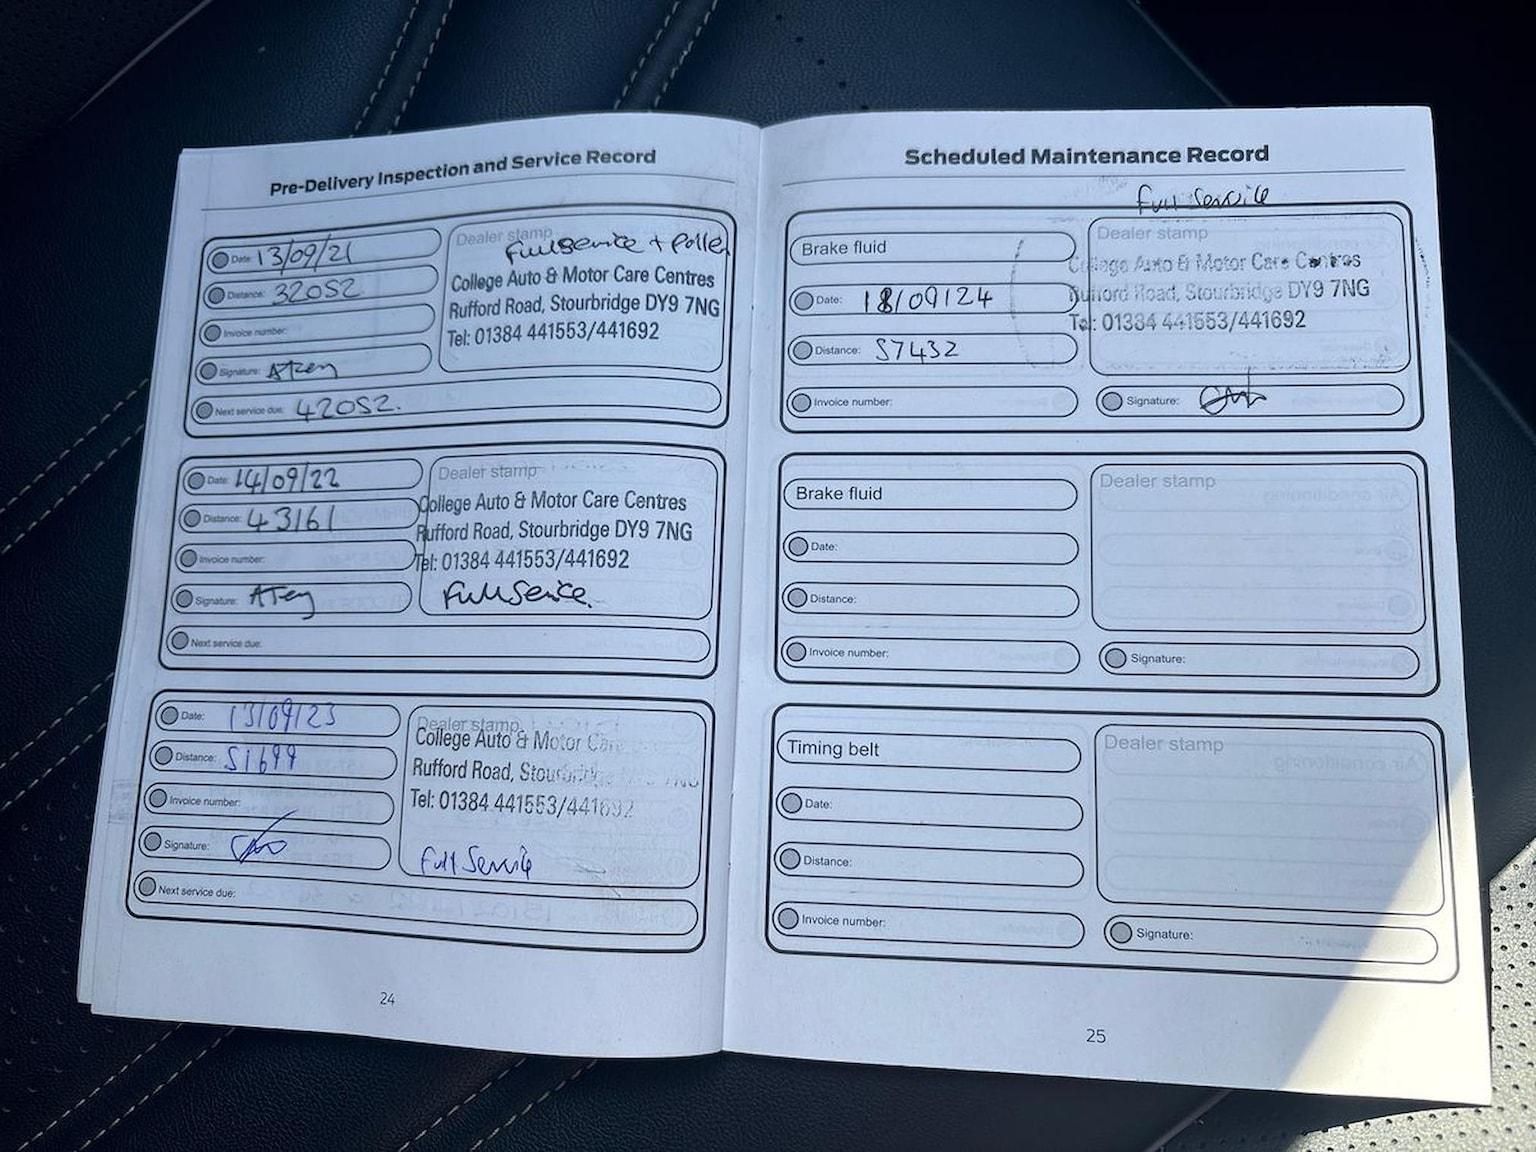 Pre-Delivery Inspection and Service Record
Date: 13/09/21
Distance: 32052
Invoice number:
Signature:
Next service due: 42052.
Dealer stamp
Full service + Pollen
College Auto & Motor Care Centres
Rufford Road, Stourbridge DY9 7NG
Tel: 01384 441553/441692
Date: 14/09/22
Distance: 43161
Invoice number:
Signature:
Next service due:
Dealer stamp
College Auto & Motor Care Centres
Rufford Road, Stourbridge DY9 7NG
Tel: 01384 441553/441692
Full Service.
Date: 13/09/23
Distance: 51699
Invoice number:
Signature:
Next service due:
Dealer stamp
College Auto & Motor Care
Rufford Road, Stourbridge DY9 7NG
Tel: 01384 441553/441692
Full Service
24
Scheduled Maintenance Record
Full Service
Brake fluid
Date: 18/09/24
Distance: 57432
Invoice number:
Dealer stamp
College Auto & Motor Care Centres
Rufford Road, Stourbridge DY9 7NG
Tel: 01384 441553/441692
Signature:
Brake fluid
Date:
Distance:
Invoice number:
Dealer stamp
Signature:
Timing belt
Date:
Distance:
Invoice number:
Dealer stamp
Signature:
25